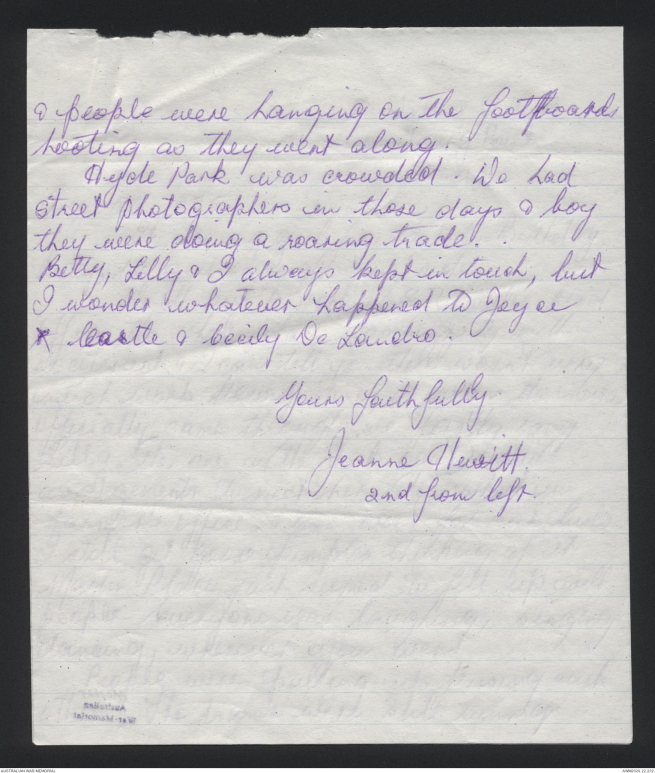 & people were hanging on the footboards
hooting as they went along.
Hyde Park was crowded. We had
street photographers in those days & boy
they were doing a roaring trade.
Betty, Lilly & I always kept in touch, but
I wonder whatever happened to Joyce
Castle & Cecily De Landro.
Yours faithfully
Jeanne Hewitt.
2nd from left.
Australian
War Memorial
AUSTRALIAN WAR MEMORIAL